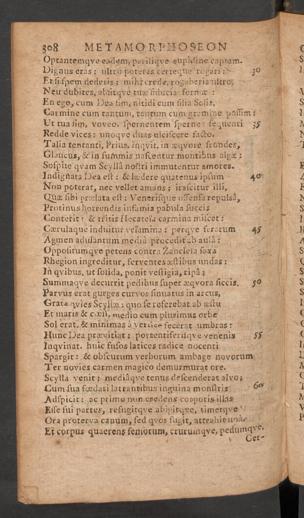 308 METAMORPHOSEON
Optantemque eadem, parilique cupidine captam.
Dignus eras: ultro poteras certeque rogari: 30
Et si spem dederis; mihi crede, rogaberis ultro.
Neu dubites, absitque tuæ fiducia formæ:
En ego, cum Dea sim, nitidi cum filia Solis,
Carmine cum tantum, tantum cum gramine possim:
Ut tua sim, voveo. spernentem sperne: sequenti 35
Redde vices: unoque duas ulciscere facto.
Talia tentanti, Prius, inquit, in æquore frondes,
Glaucus, & in summis nascentur montibus algæ:
Sospite quam Scylla nostri immutentur amores.
Indignata Dea est: & lædere quatenus ipsum 40
Non poterat, nec vellet amans; irascitur illi,
Quæ sibi prælata est: Venerisque offensa repulsâ,
Protinus horrendis infamia pabula succis
Conterit: & tritis Hecateïa carmina miscet:
Cærulaque induitur velamina: perque ferarum 45
Agmen adulantum mediâ procedit ab aulâ:
Oppositumque petens contra Zancleïa saxa
Rhegion ingreditur, ferventes æstibus undas:
In quibus, ut solida, ponit vestigia, ripâ;
Summaque decurrit pedibus super æquora siccis. 50
Parvus erat gurges curvos sinuatus in arcus,
Grata quies Scyllæ: quo se referebat ab æstu
Et maris & cœli, medio cum plurimus orbe
Sol erat, & minimas à vertice fecerat umbras:
Hunc Dea prævitiat: portentiferisque venenis 55
Inquinat. huic fusos latices radice nocenti
Spargit: & obscurum verborum ambage novorum
Ter novies carmen magico demurmurat ore.
Scylla venit: mediâque tenus descenderat alvo;
Cum sua fœdari latrantibus inguina monstris 60
Adspicit: ac primo non credens corporis illas
Esse sui partes, refugitque abigitque, timetque
Ora proterva canum, sed quos fugit, attrahit
Et corpus quærens femorum, crurumque, pedumque,
Cer-